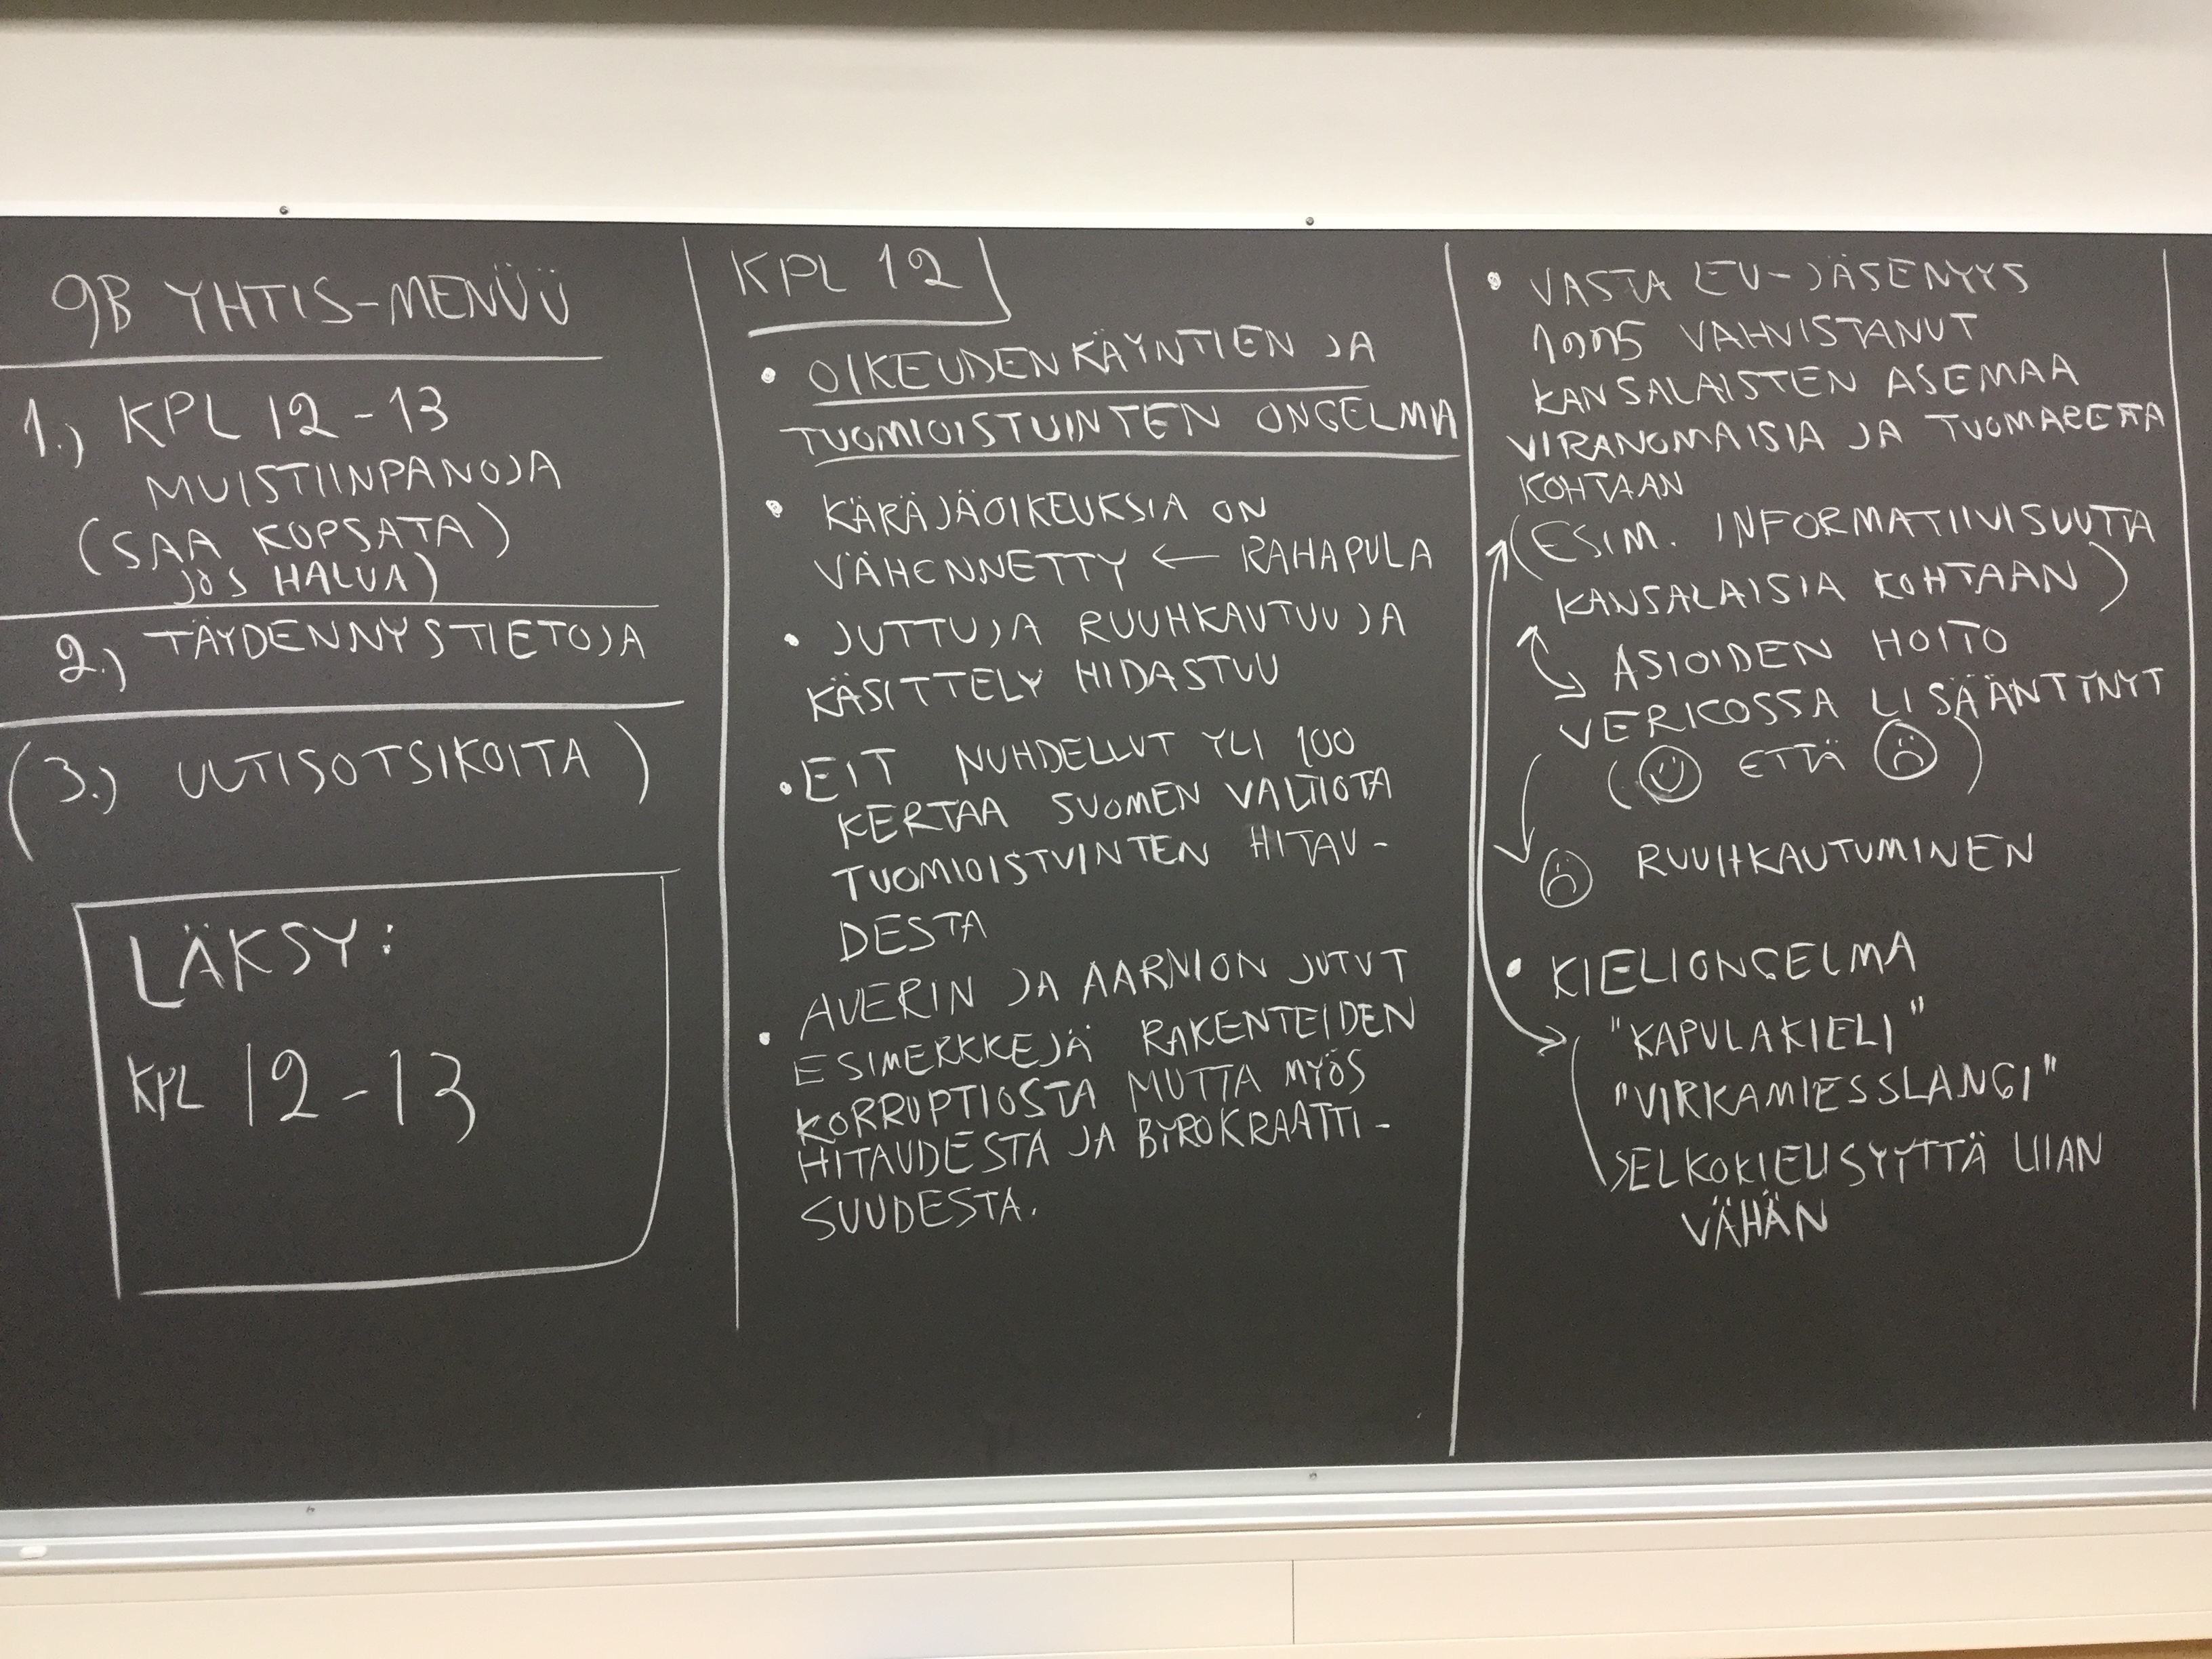 9B YHTIS-MENÜÜ
1.) KPL 12-13
MUISTIINPANOJA
(SAA KOPSATA)
JOS HALUA)
2.) TÄYDENNYSTIETOJA
(3.) UUTISOTSIKOITA)
LÄKSY:
KPL 12-13
KPL 12
• OIKEUDENKÄYNTIEN JA
TUOMIOISTUINTEN ONGELMA
• KÄRÄJÄOIKEUKSIA ON
VÄHENNETTY ← RAHAPULA
• JUTTUJA RUUHKAUTUU JA
KÄSITTELY HIDASTUU
• EIT NUHDELLUT YLI 100
KERTAA SUOMEN VALTIOTA
TUOMIOISTUINTEN HITAU-
DESTA
• AUERIN JA AARNION JUTUT
ESIMERKKEJÄ RAKENTEIDEN
KORRUPTIOSTA MUTTA MYÖS
HITAUDESTA JA BYROKRAATTI-
SUUDESTA.
• VASTA EU-JÄSENYYS
1995 VAHVISTANUT
KANSALAISTEN ASEMAA
VIRANOMAISIA JA TUOMAREITA
KOHTAAN
(ESIM. INFORMATIIVISUUTTA
KANSALAISIA KOHTAAN)
ASIOIDEN HOITO
VERKOSSA LISÄÄNTYNYT
(☺ ETTÄ ☹)
☹ RUUHKAUTUMINEN
• KIELIONGELMA
"KAPULAKIELI"
"VIRKAMIESSLANGI"
SELKOKIELISYYTTÄ LIIAN
VÄHÄN